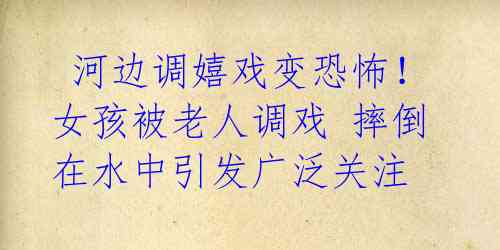 河边调嬉戏变恐怖！
女孩被老人调戏 摔倒
在水中引发广泛关注